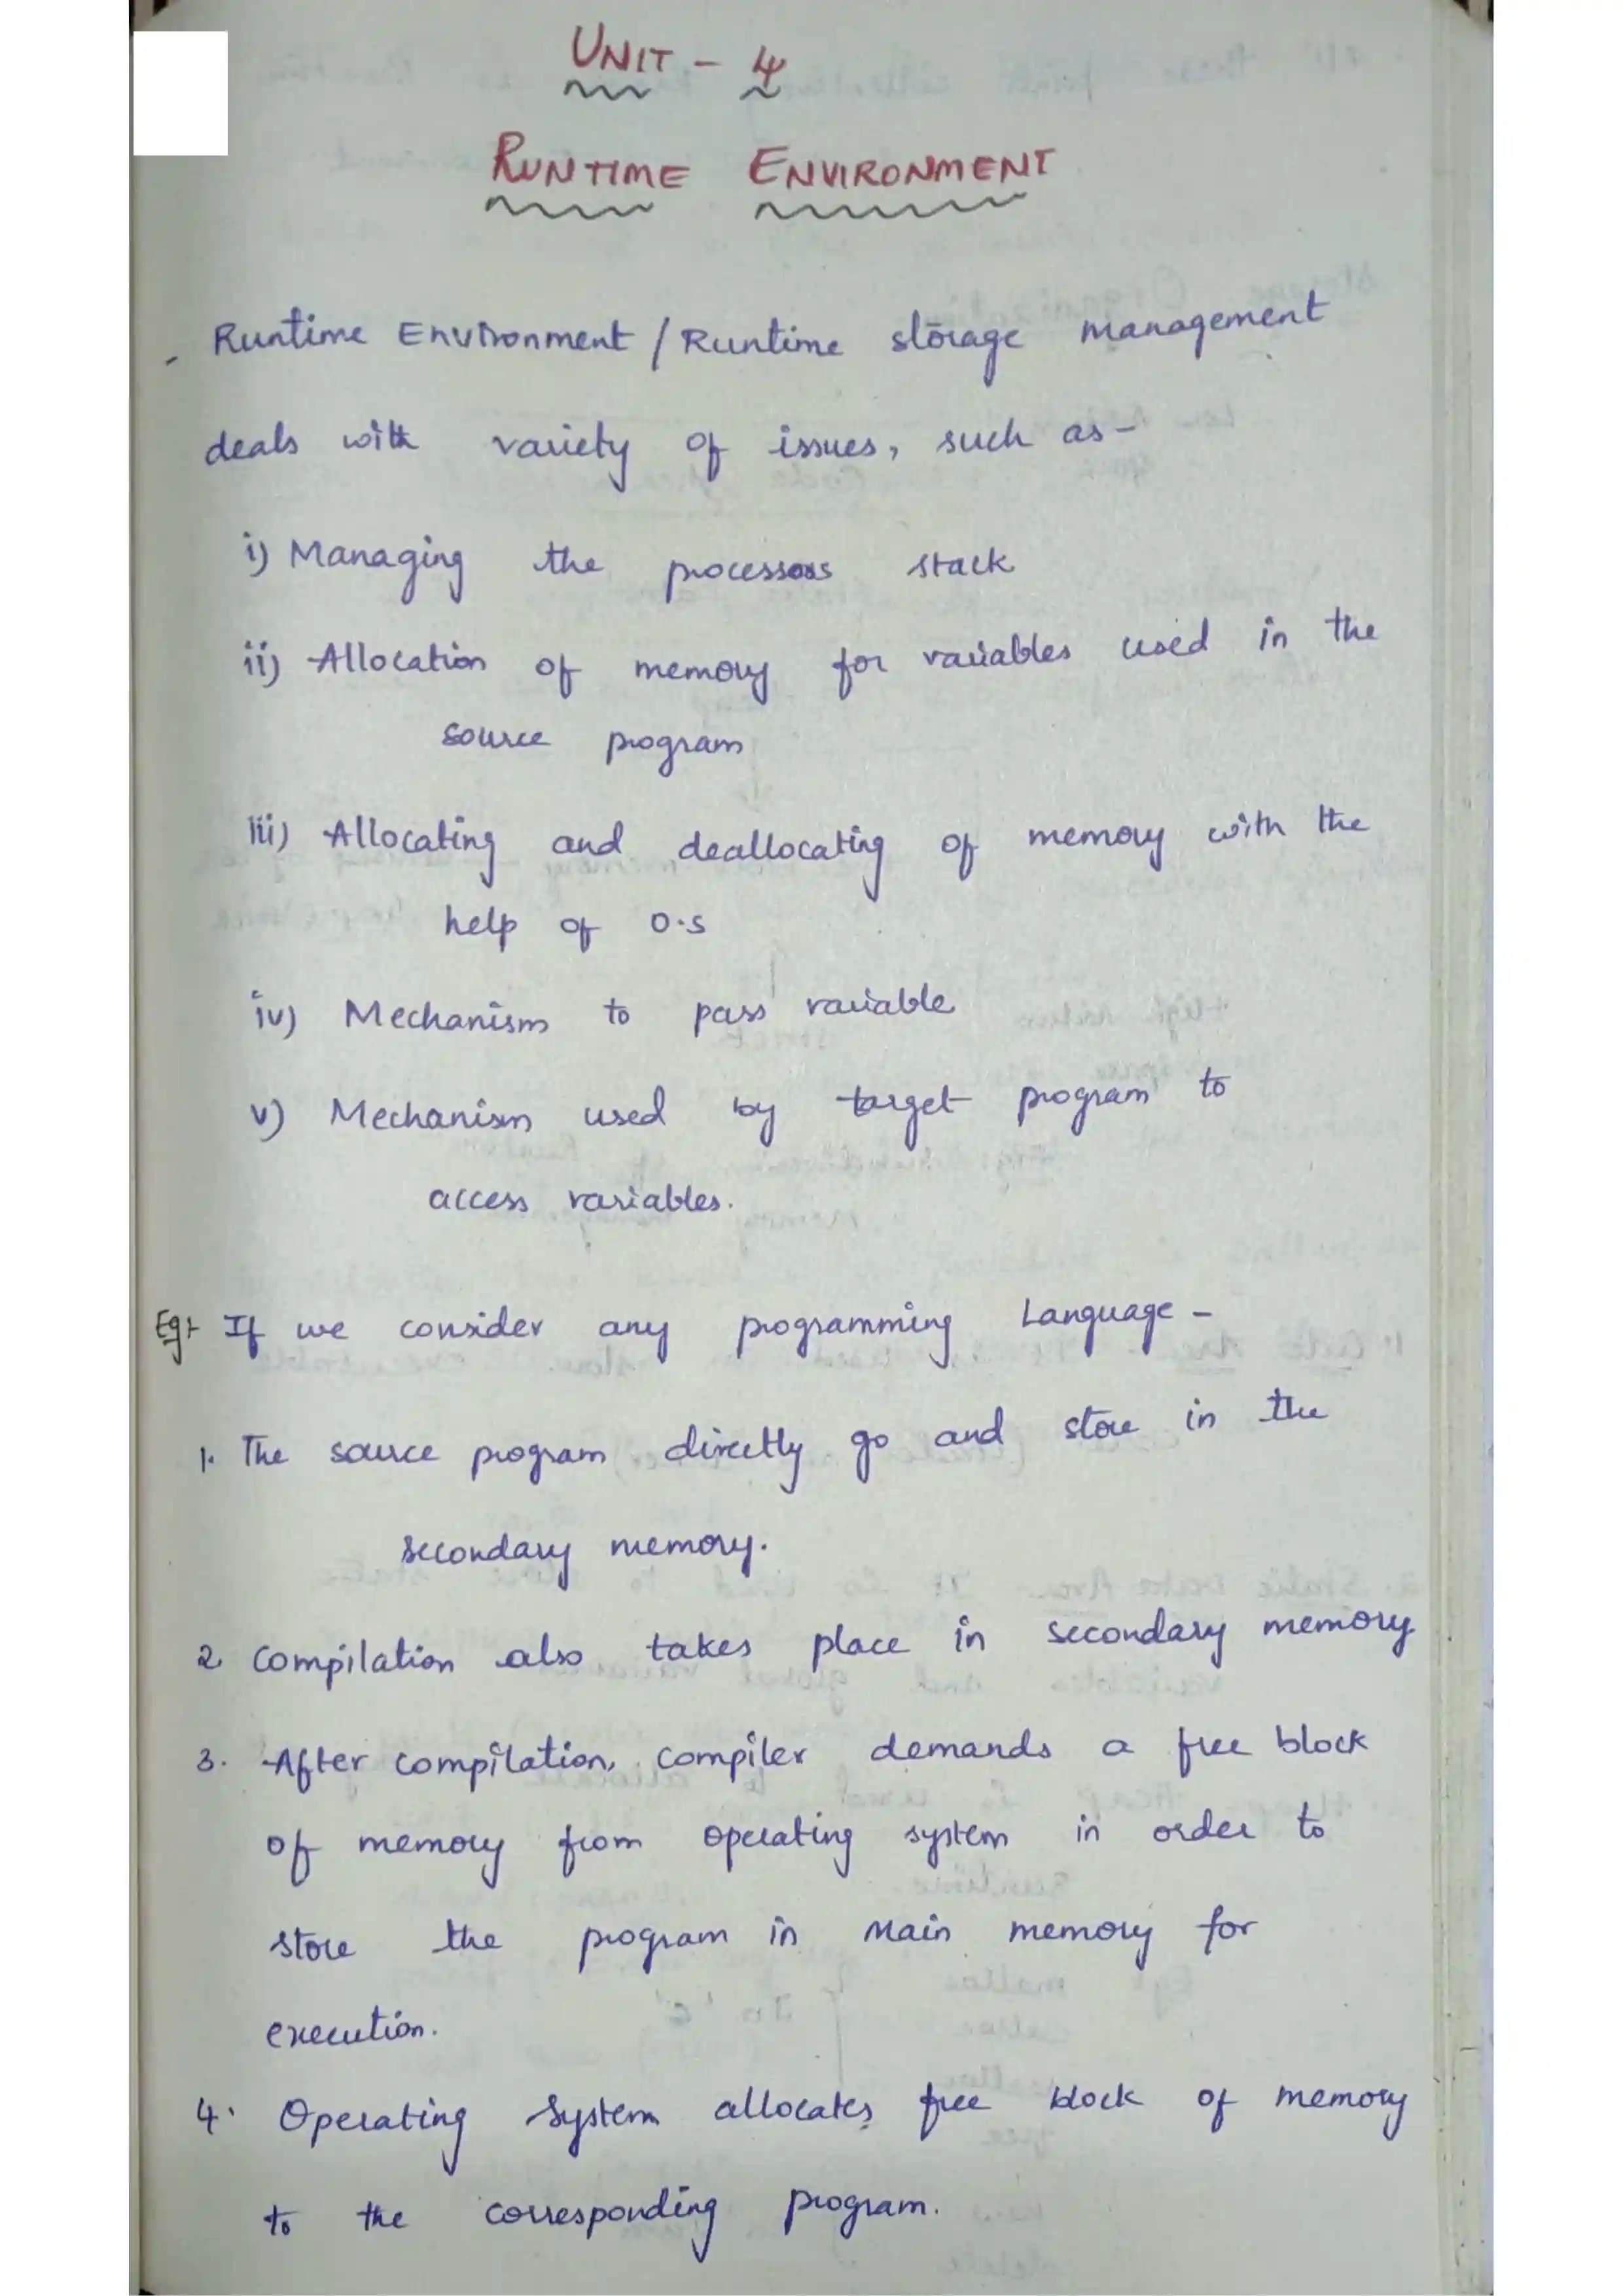 UNIT - 4
RUNTIME ENVIRONMENT
Runtime Environment / Runtime storage management
deals with variety of issues, such as -
i) Managing the processors stack
ii) Allocation of memory for variables used in the
source program
iii) Allocating and deallocating of memory with the
help of O.S
iv) Mechanism to pass variable
v) Mechanism used by target program to
access variables.
Eg:- If we consider any programming Language -
1. The source program directly go and store in the
secondary memory.
2. Compilation also takes place in secondary memory.
3. After compilation, compiler demands a free block
of memory from operating system in order to
store the program in Main memory for
execution.
4. Operating System allocates free block of memory
to the corresponding program.